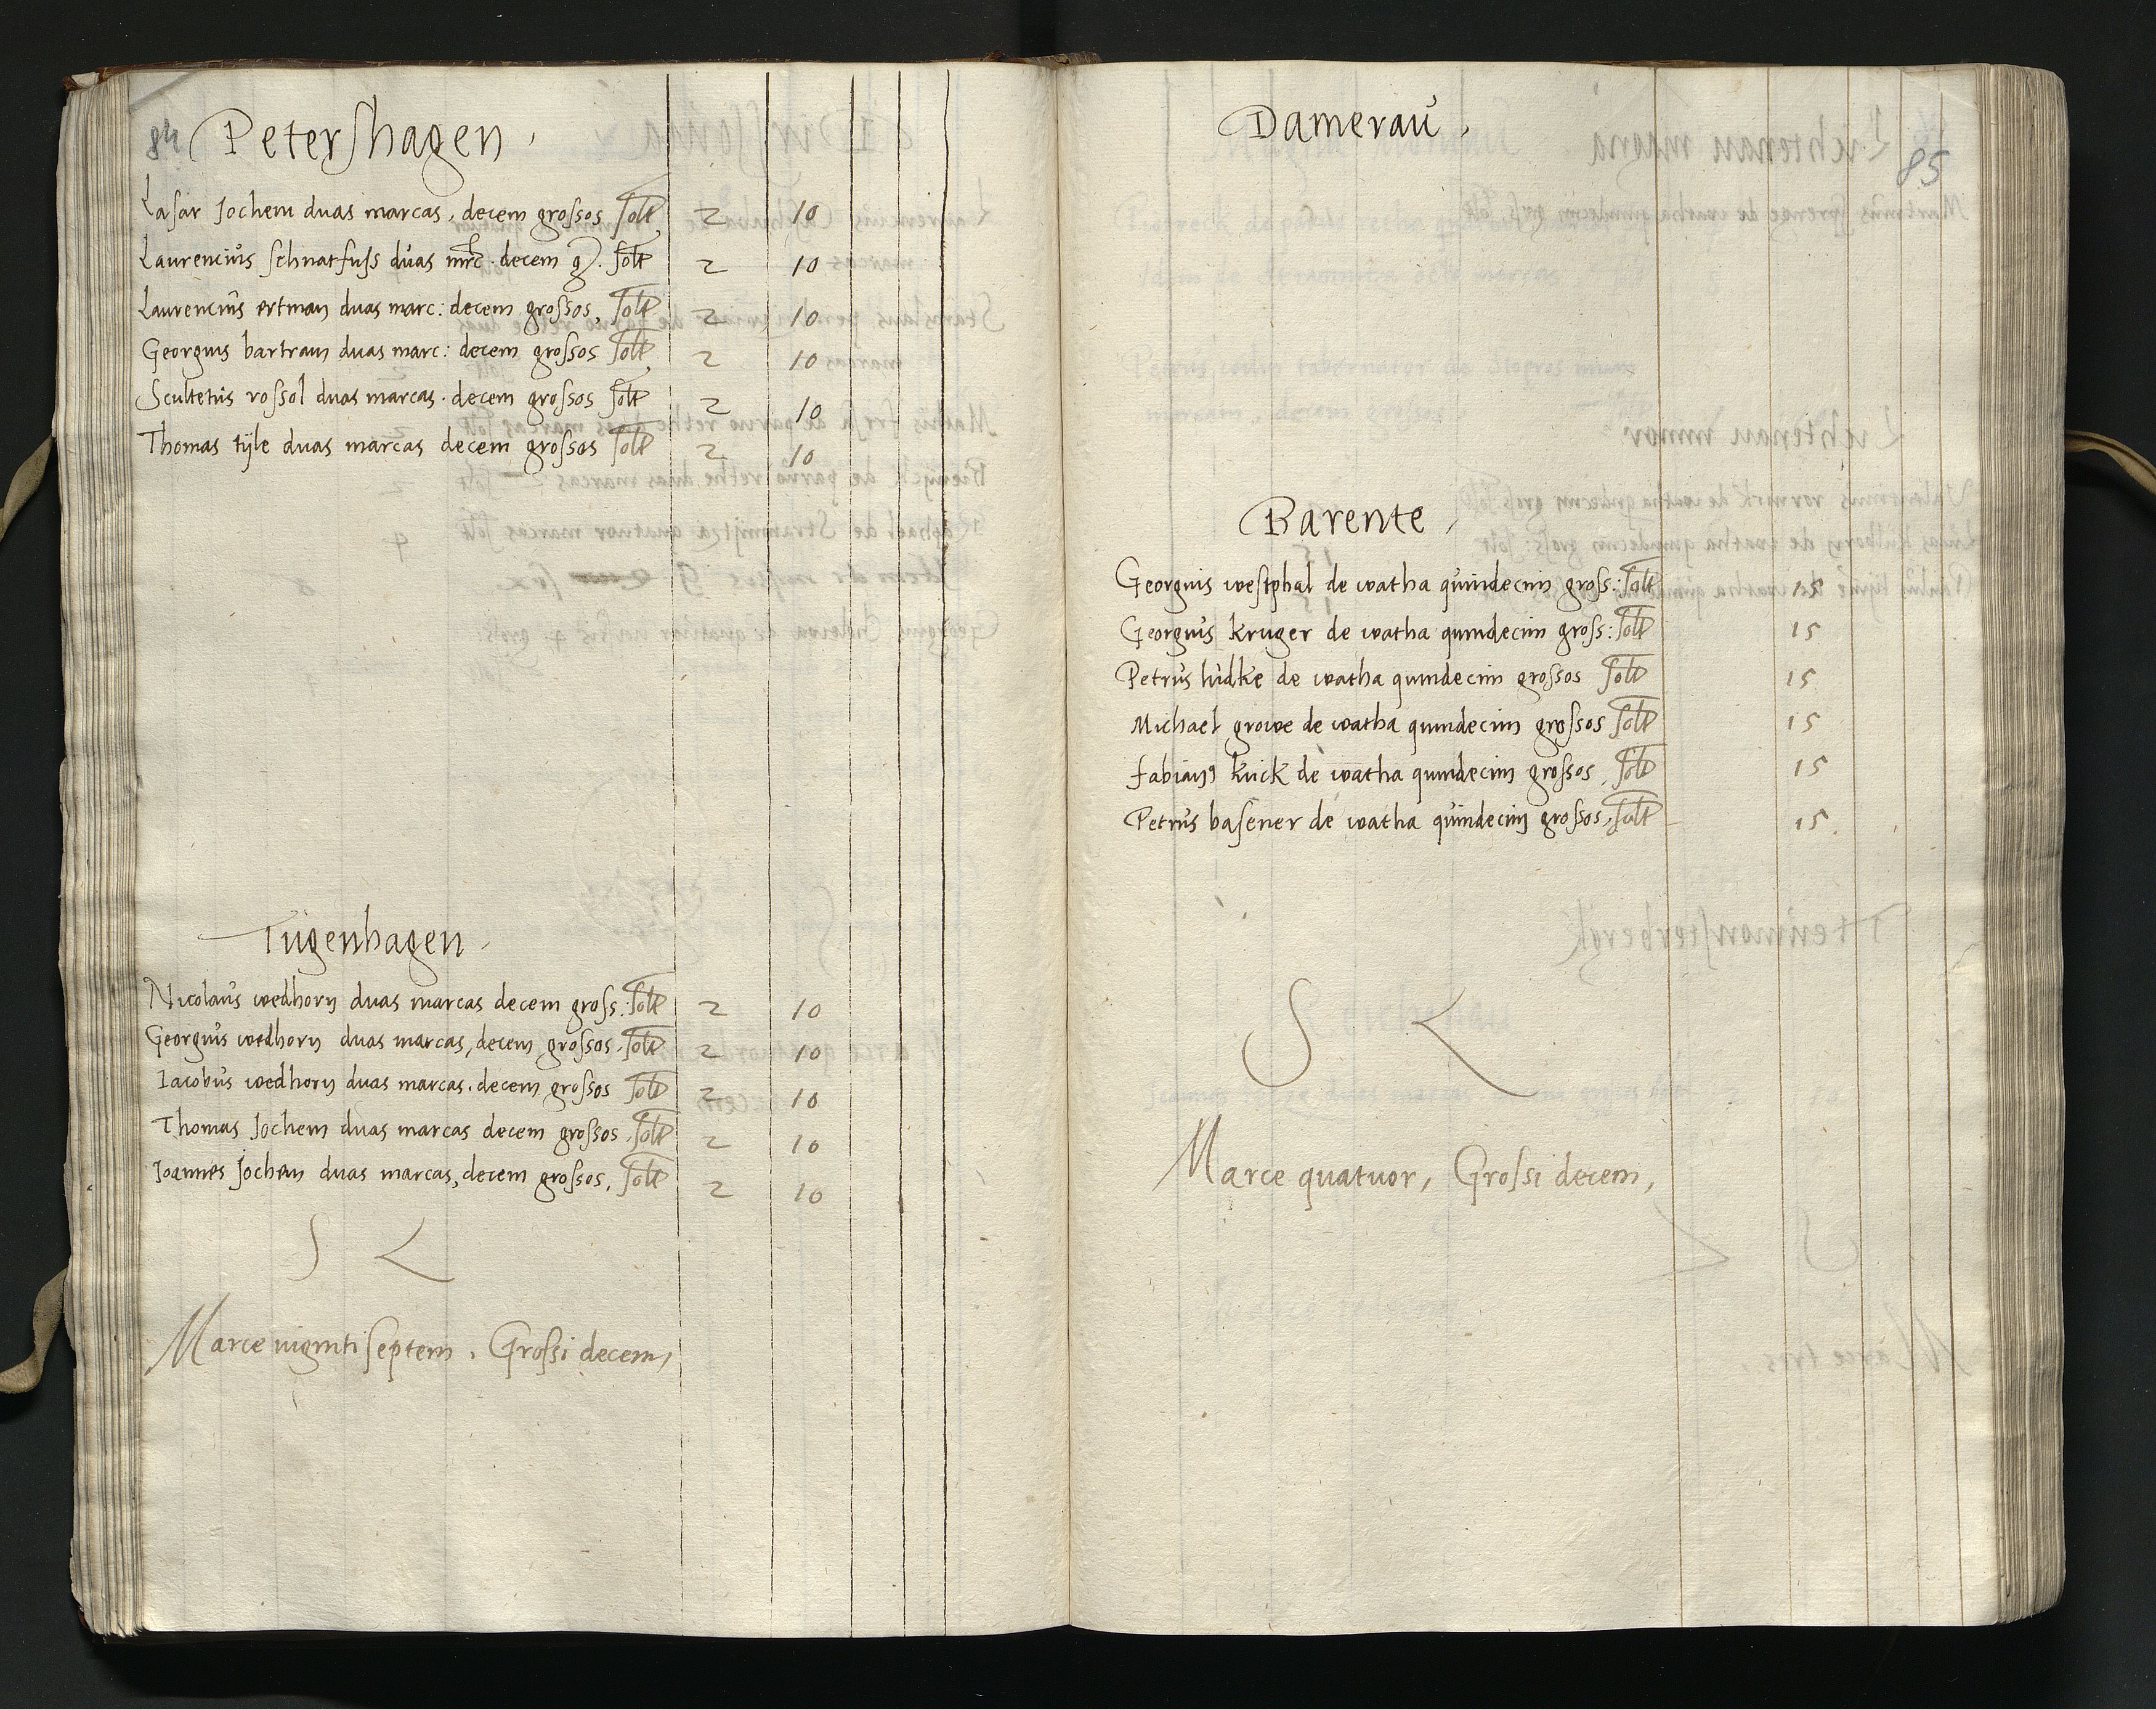 84 Petershagen.
Lasar Jochem duas marcas, decem grossos solt 2 10
Laurencius schnatfuss duas mrc. decem g. solt 2 10
Laurencius ertman duas marc: decem grossos, solt 2 10
Georgius bartram duas marc: decem grossos solt 2 10
Scultetus rossol duas marcas. decem grossos solt 2 10
Thomas tijle duas marcas decem grossos solt 2 10
Tugenhagen.
Nicolaus wedhorn duas marcas decem gross: solt 2 10
Georgius wedhorn duas marcas, decem grossos. solt 2 10
Iacobus wedhorn duas marcas. decem grossos solt 2 10
Thomas Jochem duas marcas decem grossos. solt 2 10
Joannes Jochem duas marcas, decem grossos. solt 2 10
S
Marce viginti septem. Grossi decem,
85
Damerau.
Barente.
Georgius westphal de watha quindecim gross: solt 15
Georgius kruger de watha quindecim gross: solt 15
Petrus ludke de watha quindecim grossos solt 15
Michael growe de watha quindecim grossos solt 15
fabianus kuick de watha quindecim grossos. solt 15
Petrus basener de watha quindecim grossos, solt 15.
S
Marce quatuor, Grossi decem,